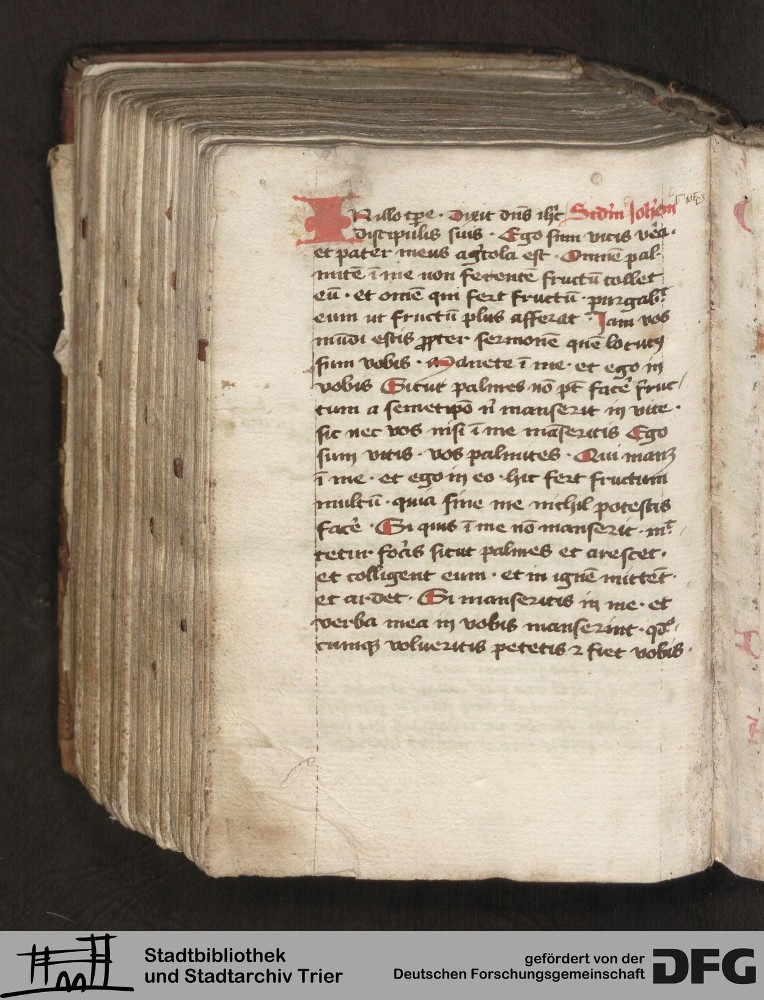 IN illo tp̄e · Dixit dn̄s ih̄c Scd̄m Joh̄em
discipulis suis · Ego sum vitis v̓a ·
et pater meus ag̓cola est · Omnē pal-
mitē ī me non ferentē fructū tollet
eū · et om̄e qui fert fructū · purgabᵗ
eum ut fructū plus afferat · Jam vos
mūdi estis ꝓpter sermonē quē locutꝰ
sum vobis · Manete ī me · et ego in
vobis Sicut palmes nō pt̄ fac̓e fruc/
tum a semetip̄o n̄ manserit in vite ·
sic nec vos nisi ī me māseritis Ego
sum vitis · vos palmites · Qui manꝫ
ī me · et ego in eo · hic fert fructum
multū · quia sine me nichil potestis
fac̓e · Si quis ī me nō manserit · mᵗ/
tetur foras sicut palmes et arescet ·
et colligent eum · et in ignē mittēt ·
et ardet · Si manseritis in me · et
verba mea in vobis manserint · qd̄/
cumqꝫ volueritis petetis ⁊ fiet vobis ·
Stadtbibliothek
und Stadtarchiv Trier
gefördert von der
Deutschen Forschungsgemeinschaft
DFG